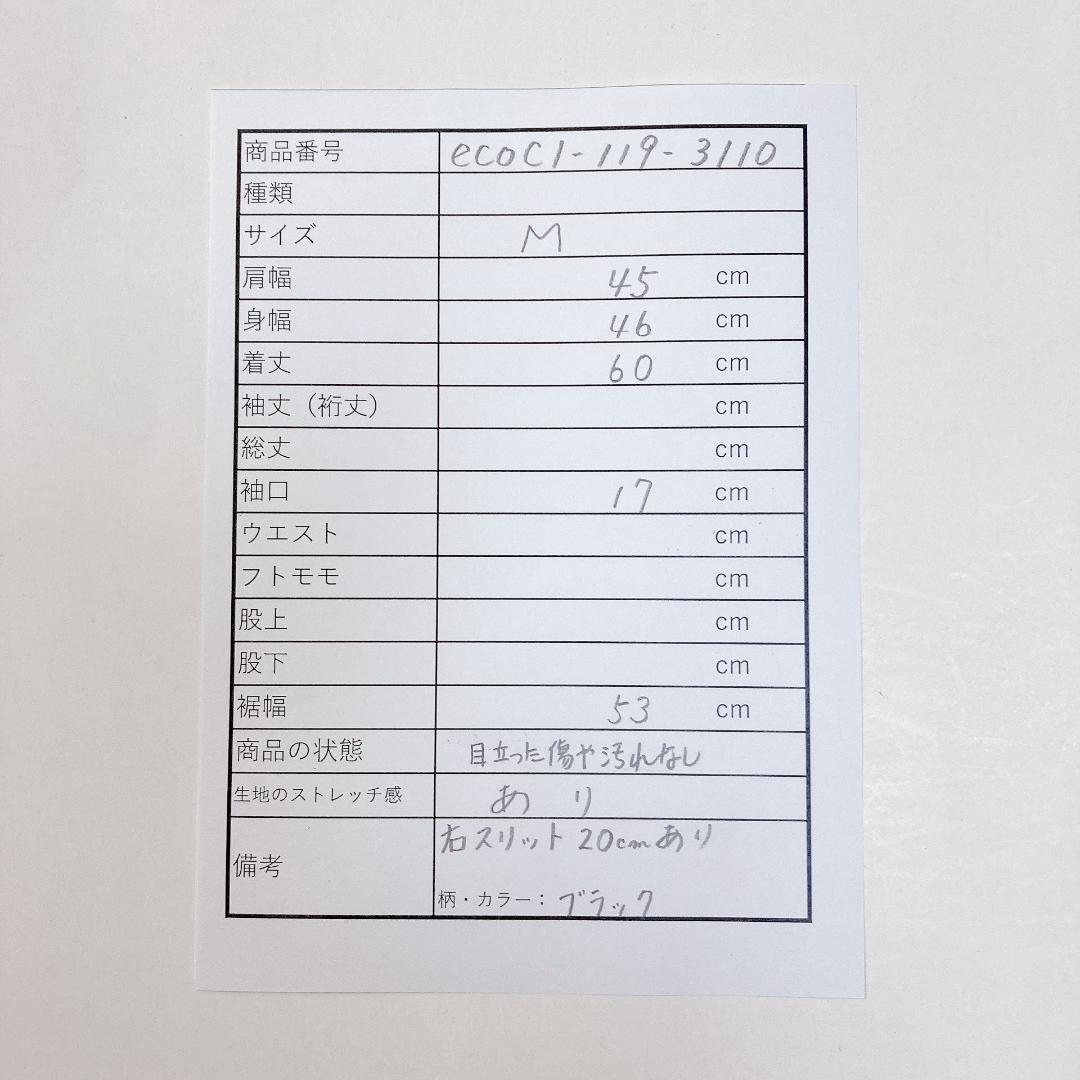 商品番号 ecoC1-119-3110
種類
サイズ M
肩幅 45 cm
身幅 46 cm
着丈 60 cm
袖丈（裄丈） cm
総丈 cm
袖口 17 cm
ウエスト cm
フトモモ cm
股上 cm
股下 cm
裾幅 53 cm
商品の状態 目立った傷や汚れなし
生地のストレッチ感 あり
備考 右スリット 20cmあり
柄・カラー：ブラック